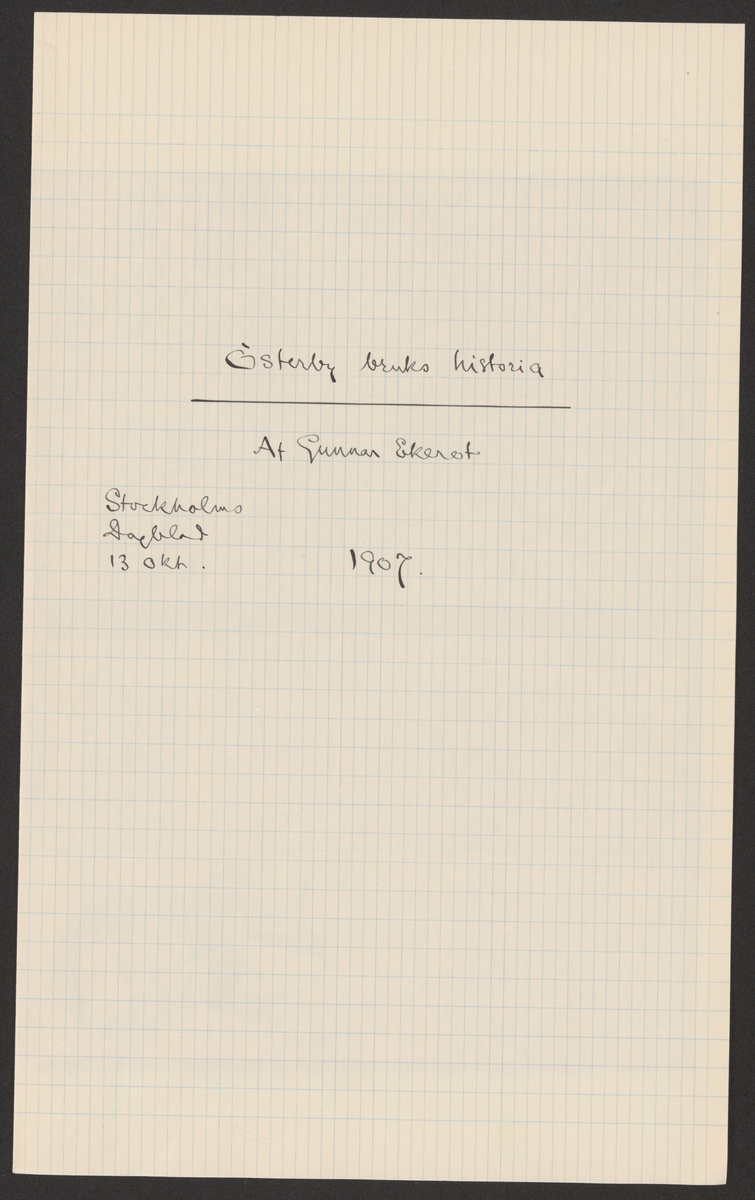 Österby bruks historia
Af Gunnar Ekerot
Stockholms
Dagblad
13 okt. 1907.